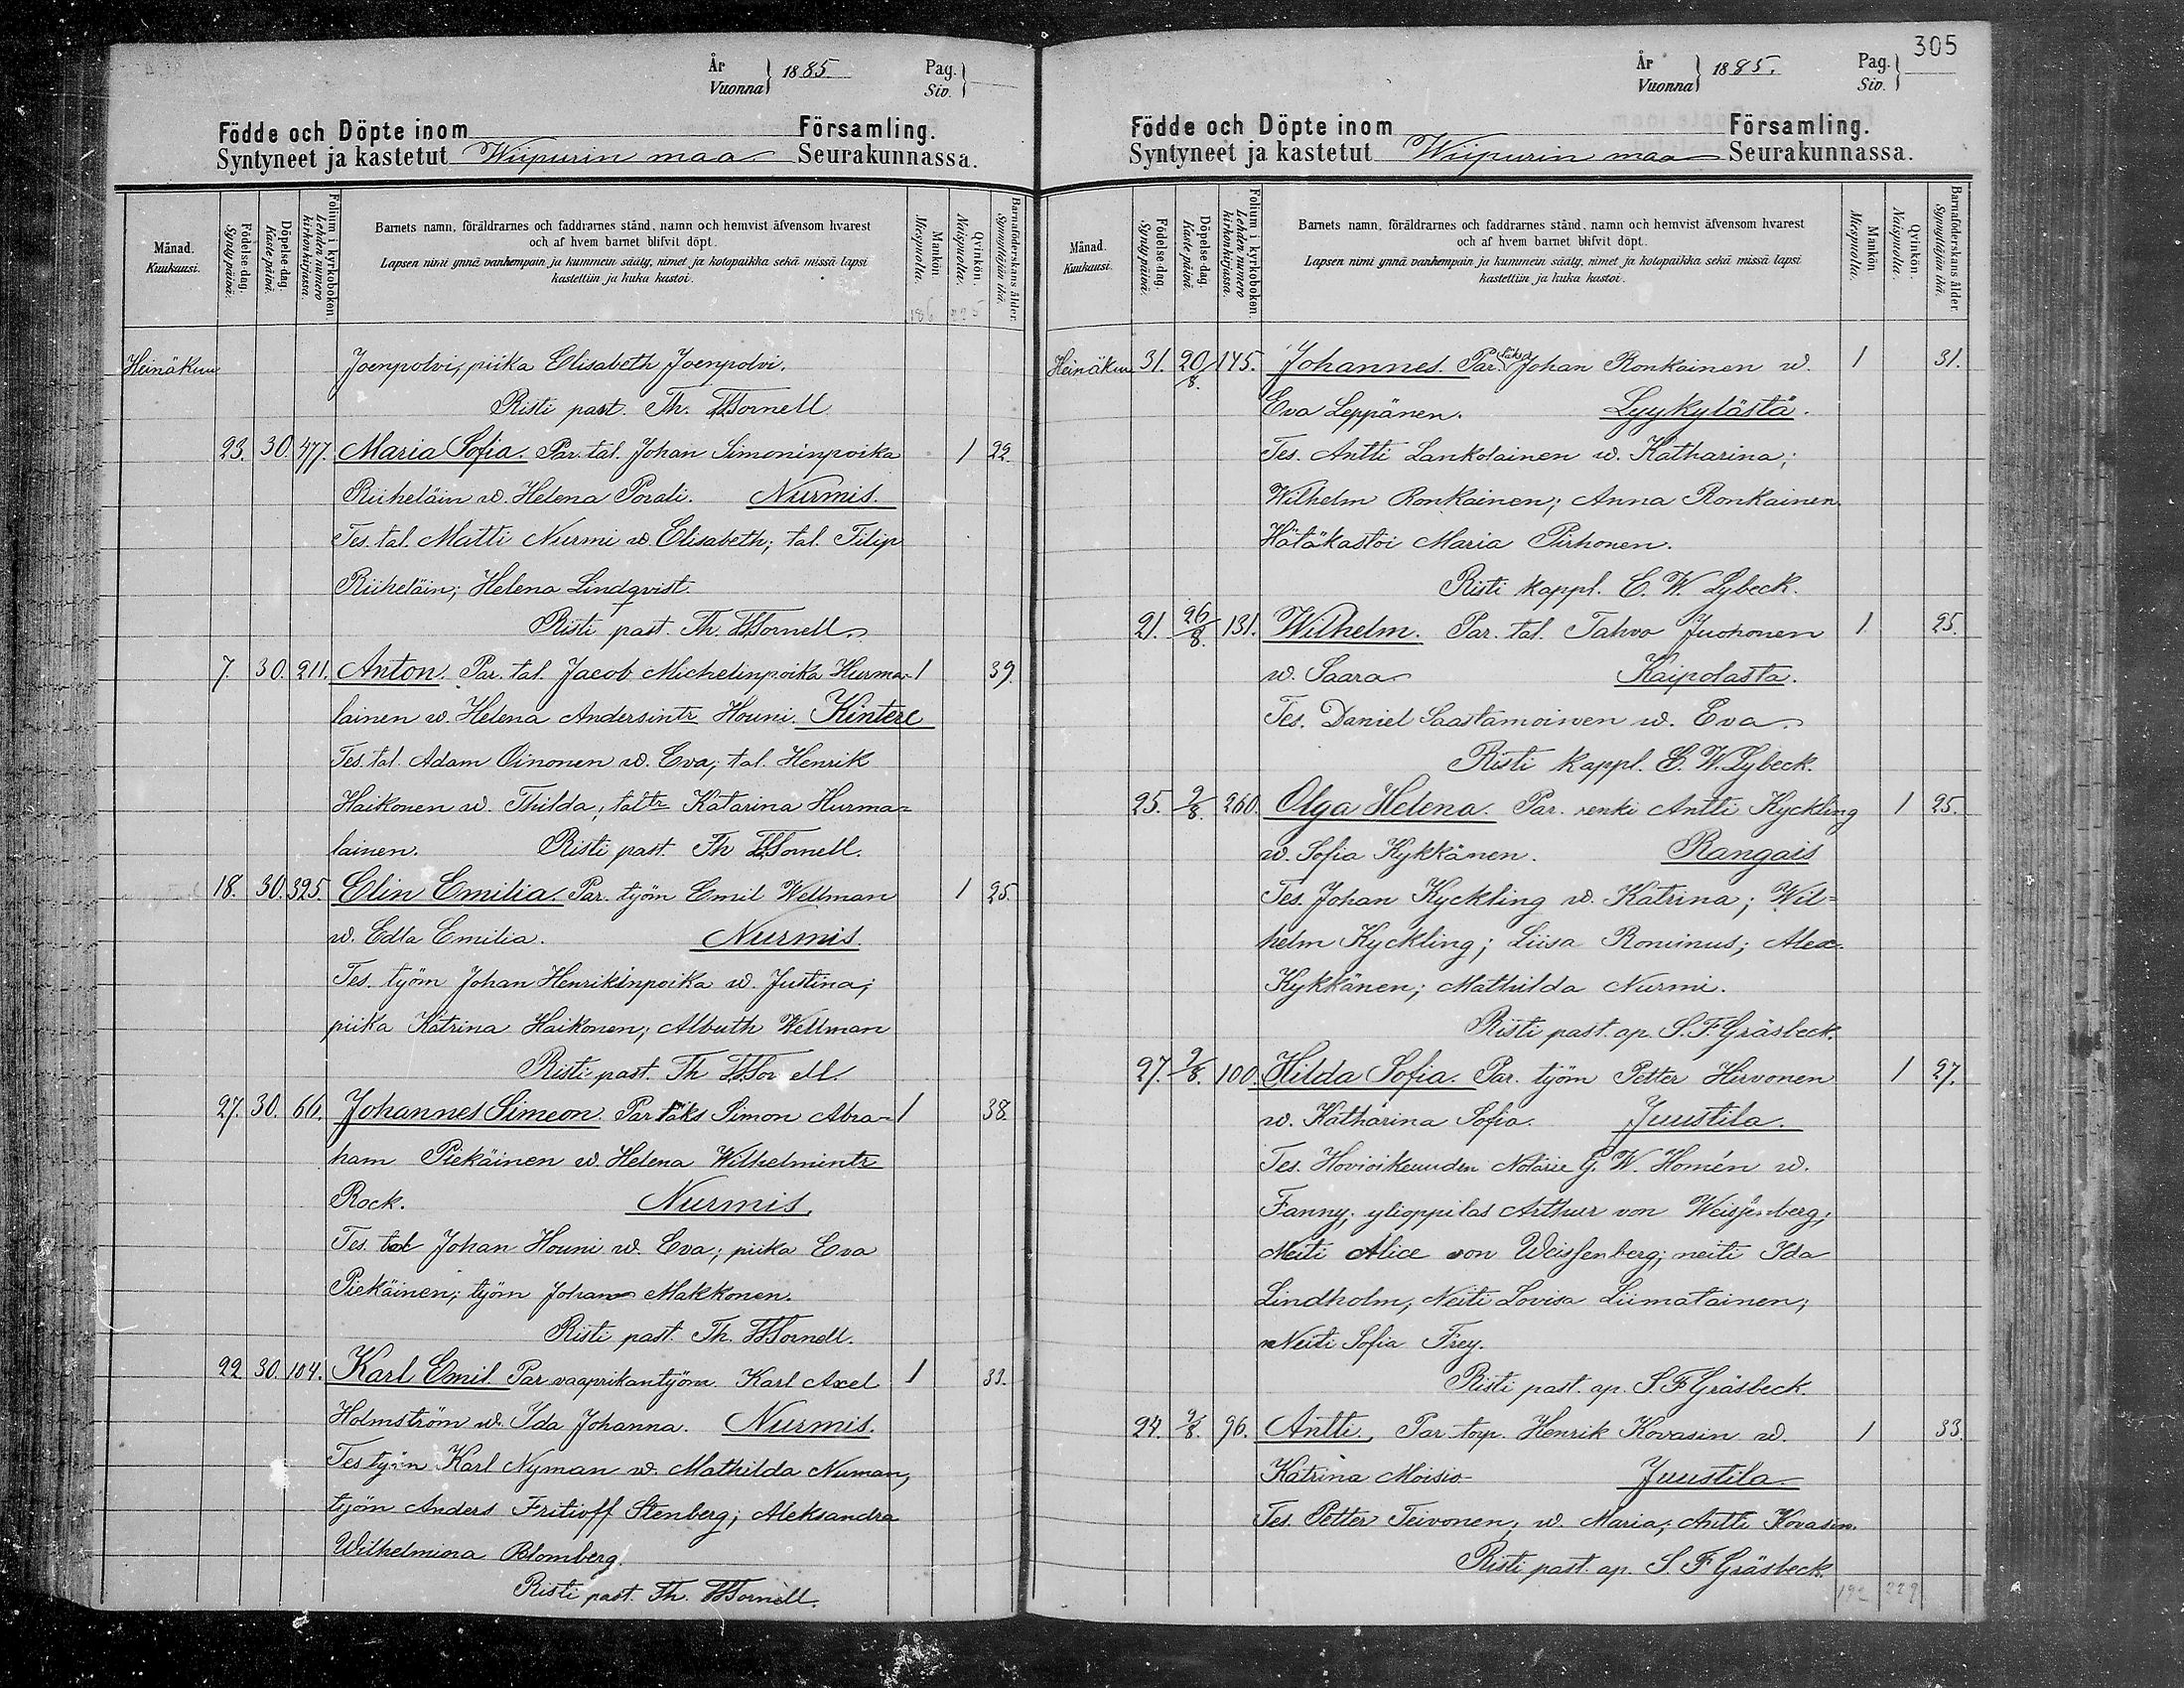 År
Vuonna } 1885. Pag.
Siv. }
Födde och Döpte inom Församling.
Syntyneet ja kastetut Wiipurin maa Seurakunnassa.
Månad.
Kuukausi.
Födelse-dag.
Synty päivä.
Döpelse-dag.
Kaste päivä.
Folium i kyrkoboken.
Lehden numero kirkonkirjassa.
Barnets namn, föräldrarnes och faddrarnes stånd, namn och hemvist äfvensom hvarest
och af hvem barnet blifvit döpt.
Lapsen nimi ynnä vanhempain ja kummein sääty, nimet ja kotopaikka sekä missä lapsi
kastettiin ja kuka kastoi.
Mankön.
Miespuolia.
Qvinkön.
Naispuolia.
Barnaföderskans ålder.
Synnyttäjän ikä.
186 225
Heinäkuu Joenpolvi, piika Elisabeth Joenpolvi.
Risti past. Th. Hornell
23. 30. 477. Maria Sofia. Par. tal. Johan Simoninpoika 1 22.
Riiheläin w. Helena Porali. Nurmis.
Tes. tal. Matti Nurmi w. Elisabeth; tal. Filip
Riiheläin; Helena Lindqvist.
Risti past. Th. Hornell.
7. 30. 211. Anton. Par. tal. Jacob Michelinpoika Hurma- 1 39.
lainen w. Helena Andersintr Houni. Kintere
Tes. tal. Adam Oinonen w. Eva; tal. Henrik
Haikonen w. Thilda; taltr Katarina Hurma=
lainen. Risti past. Th Hornell.
18. 30. 325. Elin Emilia. Par. työm Emil Wellman 1 25.
w. Edla Emilia. Nurmis.
Tes. työm Johan Henrikinpoika w. Justina;
piika Katrina Haikonen; Albuth Wellman
Risti past. Th Hornell.
27. 30. 66. Johannes Simeon. Par läks Simon Abra- 1 38.
ham Piekäinen w. Helena Wilhelmintr
Rock. Nurmis.
Tes. tal Johan Houni w. Eva; piika Eva
Piekäinen; työm Johan Makkonen.
Risti past. Th. Hornell.
22 30. 104. Karl Emil. Par vaaprikantyöm Karl Axel 1 33.
Holmström w. Ida Johanna. Nurmis.
Tes työm Karl Nyman w. Mathilda Numan,
työm Anders Fritioff Stenberg; Aleksandra
Wilhelmina Blomberg.
Risti past. Th. Hornell.
305
År
Vuonna } 1885. Pag.
Siv. }
Födde och Döpte inom Församling.
Syntyneet ja kastetut Wiipurin maa Seurakunnassa.
Månad.
Kuukausi.
Födelse-dag.
Synty päivä.
Döpelse-dag.
Kaste päivä.
Folium i kyrkoboken.
Lehden numero kirkonkirjassa.
Barnets namn, föräldrarnes och faddrarnes stånd, namn och hemvist äfvensom hvarest
och af hvem barnet blifvit döpt.
Lapsen nimi ynnä vanhempain ja kummein sääty, nimet ja kotopaikka sekä missä lapsi
kastettiin ja kuka kastoi.
Mankön
Miespuolia.
Qvinkön.
Naispuolia.
Barnaföderskans ålder.
Synnyttäjän ikä.
Heinäkuu 31. 20/8. 145. Johannes. Par. läks Johan Ronkainen w. 1 31.
Eva Leppänen. Lyykylästä.
Tes. Antti Lankolainen w. Katharina;
Wilhelm Ronkainen; Anna Ronkainen.
Hätäkastoi Maria Pirhonen.
Risti kappl. E. W. Lybeck.
21. 26/8. 131. Wilhelm. Par. tal. Tahvo Juohonen 1 25.
w. Saara Kaipolasta.
Tes. Daniel Saastamoinen w. Eva
Risti kappl. E. W. Lybeck.
25. 2/8. 260. Olga Helena. Par. renki Antti Kyckling 1 25.
w. Sofia Kykkänen. Rangais
Tes. Johan Kyckling w. Katrina; Wil=
helm Kyckling; Liisa Rominus; Alex.
Kykkänen; Mathilda Nurmi.
Risti past. ap. S. F. Gräsbeck.
27. 2/8. 100. Hilda Sofia. Par. työm Petter Hirvonen 1 27.
w. Katharina Sofia. Juustila.
Tes. Hovioikeuden Notarie G. W. Homén w.
Fanny; ylioppilas Arthur von Weissenberg;
Neiti Alice von Weissenberg; neiti Ida
Lindholm; Neiti Lovisa Liimatainen;
Neiti Sofia Frey.
Risti past. ap. S. F Gräsbeck.
24. 2/8. 96. Antti. Par torp. Henrik Kovasin w. 1 33.
Katrina Moisio Juustila.
Tes. Petter Teivonen; w. Maria; Antti Kovasin.
Risti past. ap. S. F Gräsbeck.
192 229